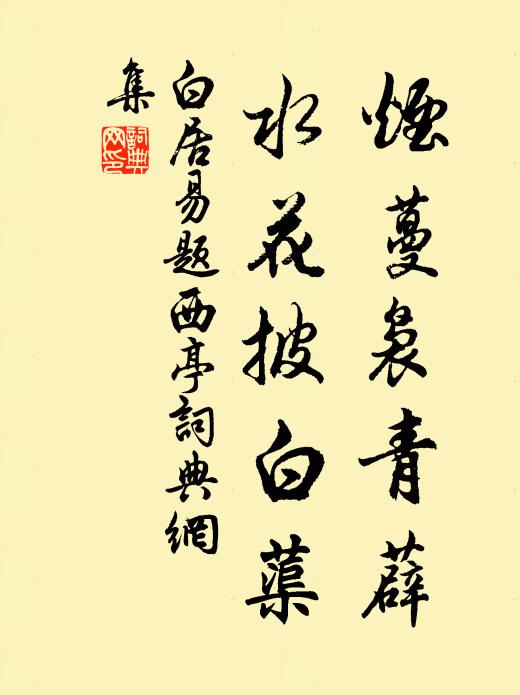 煙蔓裊青薜
水花披白蕖
白居易題西亭詞典網
集
詞典
网印